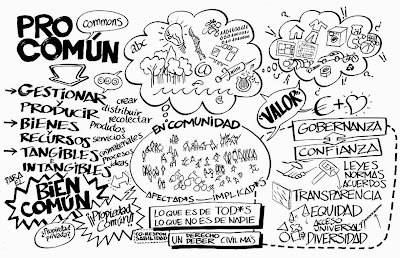 PRO
COMÚN
commons
abc
→ GESTIONAR
Y
PRODUCIR
crear
distribuir
recolectar
→ BIENES
Y
RECURSOS
productos
servicios
→ TANGIBLES
E
INTANGIBLES
Procesos
ideas
PARA EL
BIEN
COMÚN
¿Propiedad
privada?
¿Propiedad
común?
EN COMUNIDAD
AFECTAD*S
IMPLICAD*S
LO QUE ES DE TOD*S
LO QUE NO ES DE NADIE
CO-RESPON
SABILIDAD
DERECHO
UN DEBER CIVIL MÁS
"VALOR"
€ +
GOBERNANZA
CONFIANZA
LEYES
NORMAS
ACUERDOS
TRANSPARENCIA
EQUIDAD
ACCESO
UNIVERSAL
DIVERSIDAD